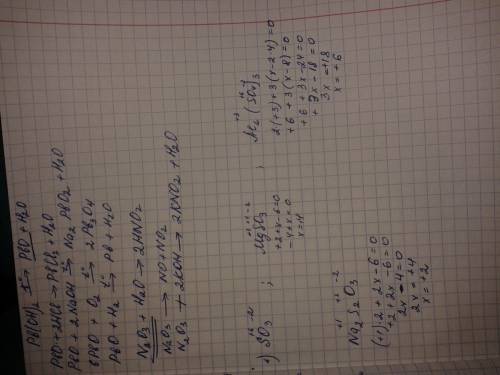 Pb(OH)₂ t°→ PbO + H₂O
PbO + 2HCl → PbCl₂ + H₂O
PbO + 2NaOH t°→ Na₂PbO₂ + H₂O
6PbO + O₂ t°→ 2Pb₃O₄
PbO + H₂ t°→ Pb + H₂O
N₂O₃ + H₂O → 2HNO₂
N₂O₃ → NO + NO₂
N₂O₃ + 2KOH → 2KNO₂ + H₂O
1) S⁺⁶O₃⁻² ; Mg⁺²S⁺⁴O₃⁻² ; Al₂⁺³(S⁺⁶O₄⁻²)₃
+2+x-6=0
-4+x=0
x=+4
2(+3)+3(x-2·4)=0
+6+3(x-8)=0
+6+3x-24=0
+3x-18=0
3x=+18
x=+6
Na₂⁺¹S₂⁺²O₃⁻²
(+1)·2+2x-6=0
+2+2x-6=0
2x-4=0
2x=+4
x=+2